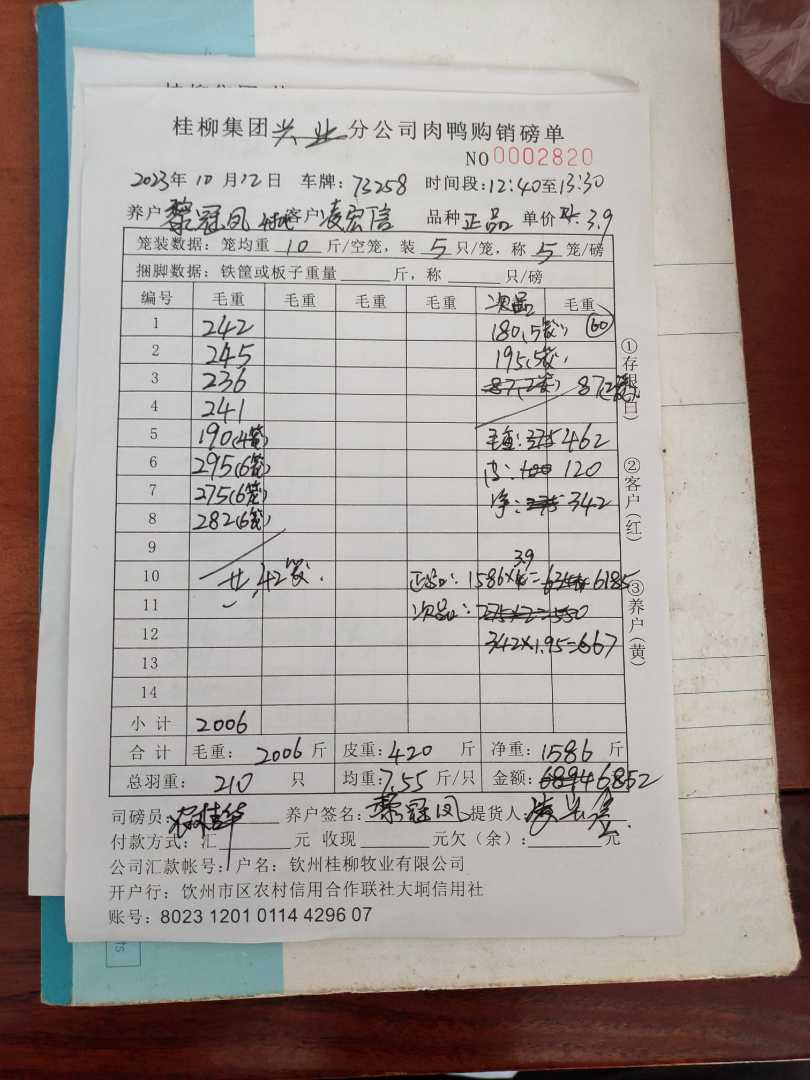 桂柳集团兴业分公司肉鸭购销磅单
NO 0002820
2023年10月12日 车牌：73258 时间段：12:40至13:30
养户黎冠凤 客户凌宏信 品种正品 单价 3.9
笼装数据：笼均重 10 斤/空笼，装 5 只/笼，称 5 笼/磅
捆脚数据：铁筐或板子重量 斤，称 只/磅
编号 毛重 毛重 毛重 毛重 次品 毛重
1 242 180(5笼) 60
2 245 195(5笼)
3 236 87(2笼) 87(2笼)
4 241
5 190(4笼) 毛重：375 462
6 295(6笼) 皮：100 120
7 275(6笼) 净：275 342
8 282(6笼)
9 3.9
10 共42笼. 正品：1586×4= 6185
11 次品：275×2=550
12 342×1.95=667
13
14
小计 2006
合计 毛重：2006斤 皮重：420斤 净重：1586斤
总羽重：210 只 均重：7.55斤/只 金额：6894 6852
司磅员： 养户签名：黎冠凤 提货人：
付款方式：汇 元 收现 元欠（余）： 元
公司汇款帐号：户名：钦州桂柳牧业有限公司
开户行：钦州市区农村信用合作联社大垌信用社
账号：8023 1201 0114 4296 07
①存根(白)
②客户(红)
③养户(黄)